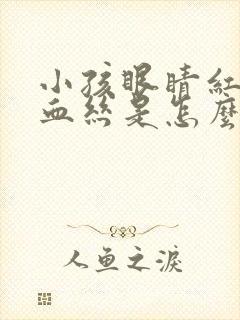 小孩眼睛紅
血絲是怎麼
人鱼之淚